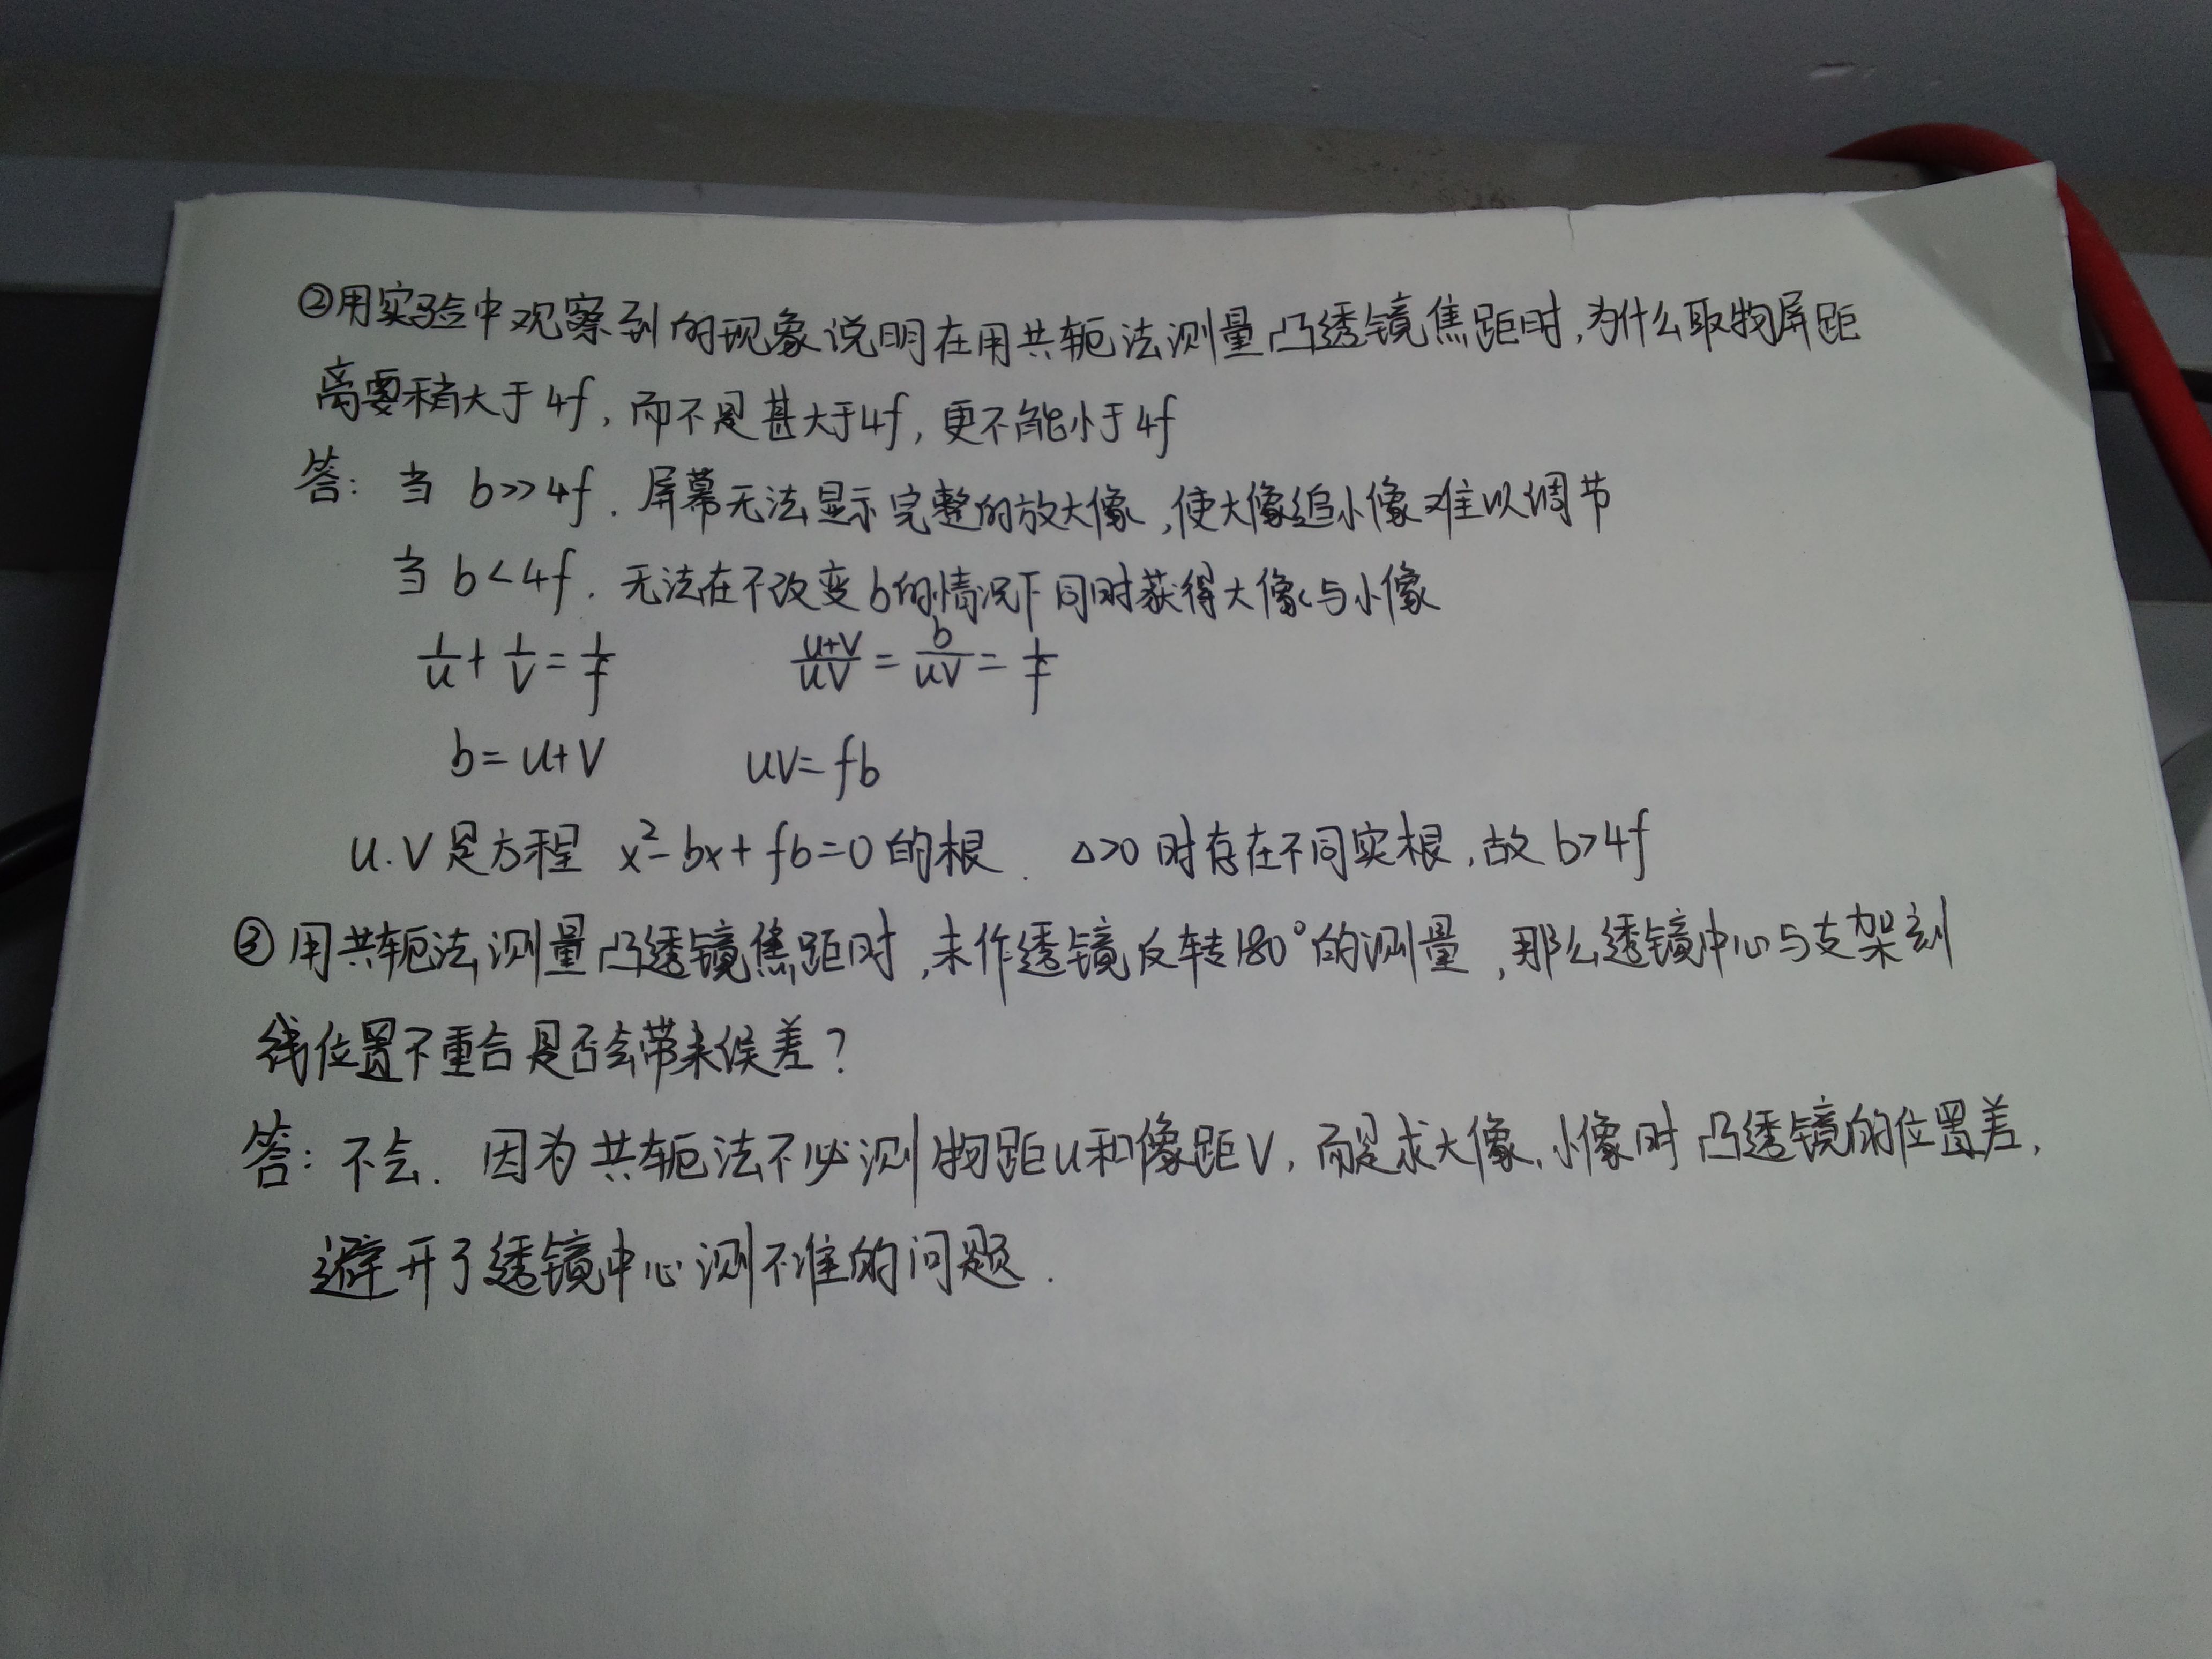 ②用实验中观察到的现象说明在用共轭法测量凸透镜焦距时,为什么取物屏距
离要稍大于4f,而不是甚大于4f,更不能小于4f
答: 当 b>>4f. 屏幕无法显示完整的放大像,使大像追小像难以调节
当 b<4f. 无法在不改变b的情况下同时获得大像与小像
1/u + 1/v = 1/f   (u+v)/(uv) = b/(uv) = 1/f
b=u+v   uv=fb
u.v是方程 x²-bx+fb=0的根. Δ>0时存在不同实根,故b>4f
③用共轭法测量凸透镜焦距时,未作透镜反转180°的测量,那么透镜中心与支架刻
线位置不重合是否会带来误差?
答: 不会. 因为共轭法不必测物距u和像距v,而是求大像、小像时凸透镜的位置差,
避开了透镜中心测不准的问题.